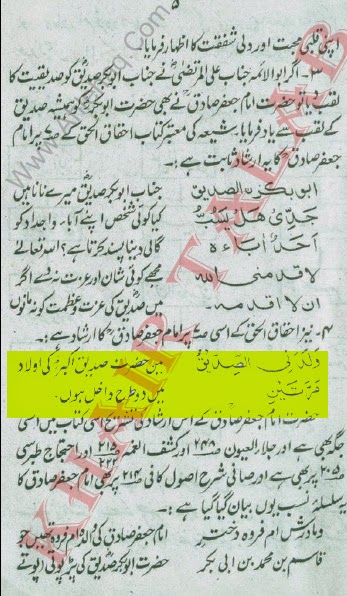 ۵
اپنی قلبی محبت اور دلی شفقت کا اظہار فرمایا۔
۳۔ اگر ابوالائمہ جناب علی المرتضیٰؓ نے جناب ابوبکر صدیقؓ کو صدیقیت کا
لقب دیا تو حضرت امام جعفر صادقؒ نے بھی حضرت ابوبکرؓ کو ہمیشہ صدیق
کے لقب سے یاد فرمایا۔ شیعہ کی معتبر کتاب احقاق الحق کے ص پر امام
جعفر صادقؒ کا یہ ارشاد ثابت ہے:۔
ابوبکرن الصدیق جناب ابوبکر صدیقؓ میرے نانا ہیں
جَدِّیْ هَلْ یَسُبُّ کیا کوئی شخص اپنے آباء و اجداد کو
اَحَدٌ اٰبَاءَهٗ گالی دینا پسند کرتا ہے؟ اللہ تعالٰے
لا قدمنی الله مجھے کوئی شان اور عزت نہ دے اگر
ان لا اقدمه۔ میں صدیقؓ کی عزت و عظمت کو نہ مانوں
۴۔ نیز احقاق الحق کے اسی ص پر امام جعفر صادقؒ کا ارشاد ہے:۔
وَلَدَنِی الصِّدِّیْقُ میں حضرت صدیق اکبرؓ کی اولاد
مَرَّتَیْنِ میں دو طرح داخل ہوں۔
حضرت امام جعفر صادقؒ کے اس ارشاد کی تشریح اسی کتاب میں اسی
جگہ بھی ہے اور جلاء العیون ص ۲۴۸ اور کشف الغمہ ص ۲۱۵، ۲۲۲ اور احتجاج طبرسی
ص ۲۰۵ پر بھی ہے اور صافی شرح اصول کافی ص ۲۱۴ پر بھی امام جعفر صادقؒ کا
یہ سلسلہ نسب یوں بیان کیا گیا ہے۔
ومادرش ام فروہ دختر امام جعفر صادقؒ کی والدہ ام فروہ تھیں جو
قاسم بن محمد بن ابی بکر حضرت ابوبکر صدیقؓ کی پڑپوتی (پوتے
KHAIR TALAB